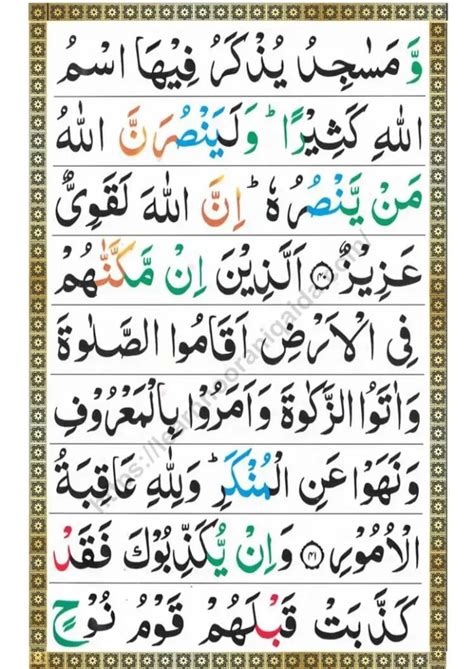 وَّ مَسٰجِدُ يُذْكَرُ فِيْهَا اسْمُ
اللّٰهِ كَثِيْرًا ؕ وَلَيَنْصُرَنَّ اللّٰهُ
مَنْ يَّنْصُرُهٗ ؕ اِنَّ اللّٰهَ لَقَوِىٌّ
عَزِيْزٌ ﴿۴۰﴾ اَلَّذِيْنَ اِنْ مَّكَّنّٰهُمْ
فِى الْاَرْضِ اَقَامُوا الصَّلٰوةَ
وَاٰتَوُا الزَّكٰوةَ وَاَمَرُوْا بِالْمَعْرُوْفِ
وَنَهَوْا عَنِ الْمُنْكَرِ ؕ وَلِلّٰهِ عَاقِبَةُ
الْاُمُوْرِ ﴿۴۱﴾ وَاِنْ يُّكَذِّبُوْكَ فَقَدْ
كَذَّبَتْ قَبْلَهُمْ قَوْمُ نُوْحٍ
https://learnnooraniqaida.com/